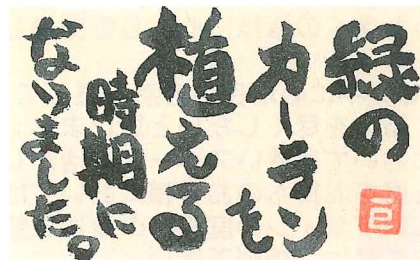 緑の
カーテンを
植える
時期に
なりました。